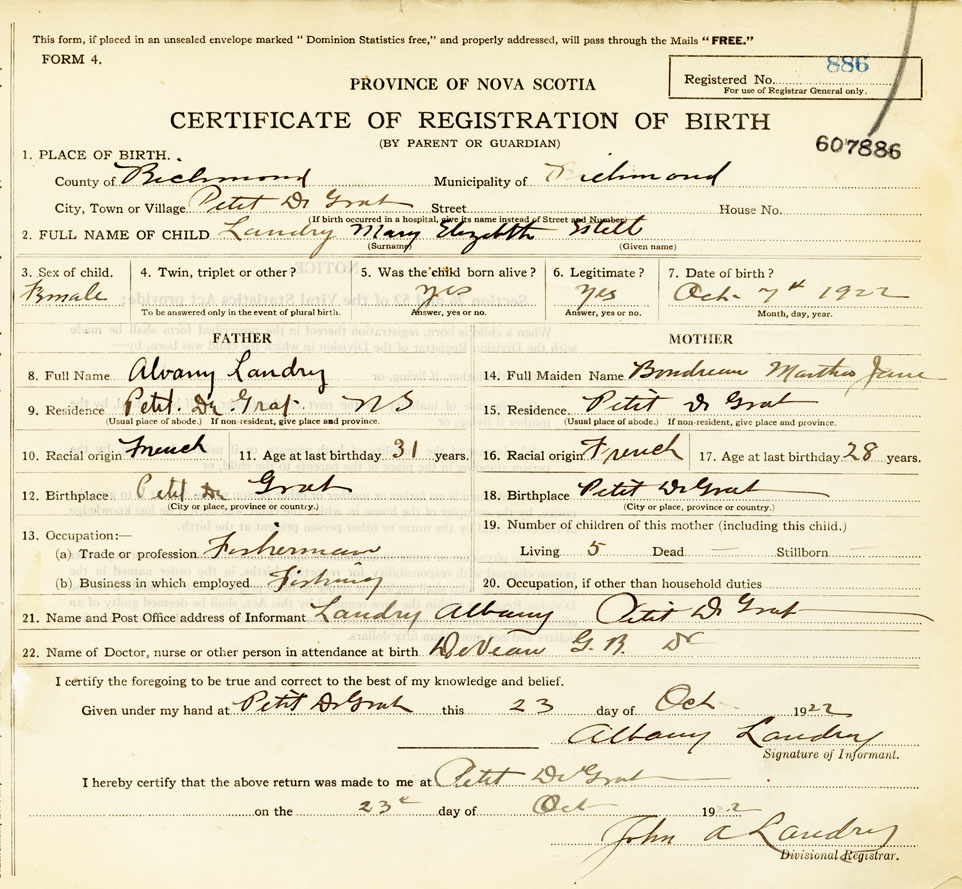 This form, if placed in an unsealed envelope marked " Dominion Statistics free," and properly addressed, will pass through the Mails "FREE."
FORM 4.
886
PROVINCE OF NOVA SCOTIA
Registered No.
For use of Registrar General only.
CERTIFICATE OF REGISTRATION OF BIRTH
(BY PARENT OR GUARDIAN)
607886
1. PLACE OF BIRTH.
County of Richmond Municipality of Richmond
City, Town or Village Petit De Grat Street House No.
(If birth occurred in a hospital, give its name instead of Street and Number)
2. FULL NAME OF CHILD Landry Mary Elizebth Estell
(Surname) (Given name)
3. Sex of child. 4. Twin, triplet or other? 5. Was the child born alive? 6. Legitimate? 7. Date of birth?
Female yes Yes Oct- 7th 1922
To be answered only in the event of plural birth. Answer, yes or no. Answer, yes or no. Month, day, year.
FATHER MOTHER
8. Full Name Alvany Landry 14. Full Maiden Name Boudreau Martha Jane
9. Residence Petit. De. Grat NS 15. Residence. Petit De Grat
(Usual place of abode.) If non-resident, give place and province. (Usual place of abode.) If non-resident, give place and province.
10. Racial origin French 11. Age at last birthday 31 years. 16. Racial origin French 17. Age at last birthday 28 years.
12. Birthplace Petit De Grat 18. Birthplace Petit De Grat
(City or place, province or country.) (City or place, province or country.)
13. Occupation:— 19. Number of children of this mother (including this child.)
(a) Trade or profession Fisherman Living 5 Dead — Stillborn —
(b) Business in which employed Fishing 20. Occupation, if other than household duties
21. Name and Post Office address of Informant Landry Albany Petit De Grat
22. Name of Doctor, nurse or other person in attendance at birth DeVeau G. B. Dr
I certify the foregoing to be true and correct to the best of my knowledge and belief.
Given under my hand at Petit De Grat this 23 day of Oct 1922
Albany Landry
Signature of Informant.
I hereby certify that the above return was made to me at Petit De Grat
on the 23rd day of Oct 1922
John A Landry
Divisional Registrar.